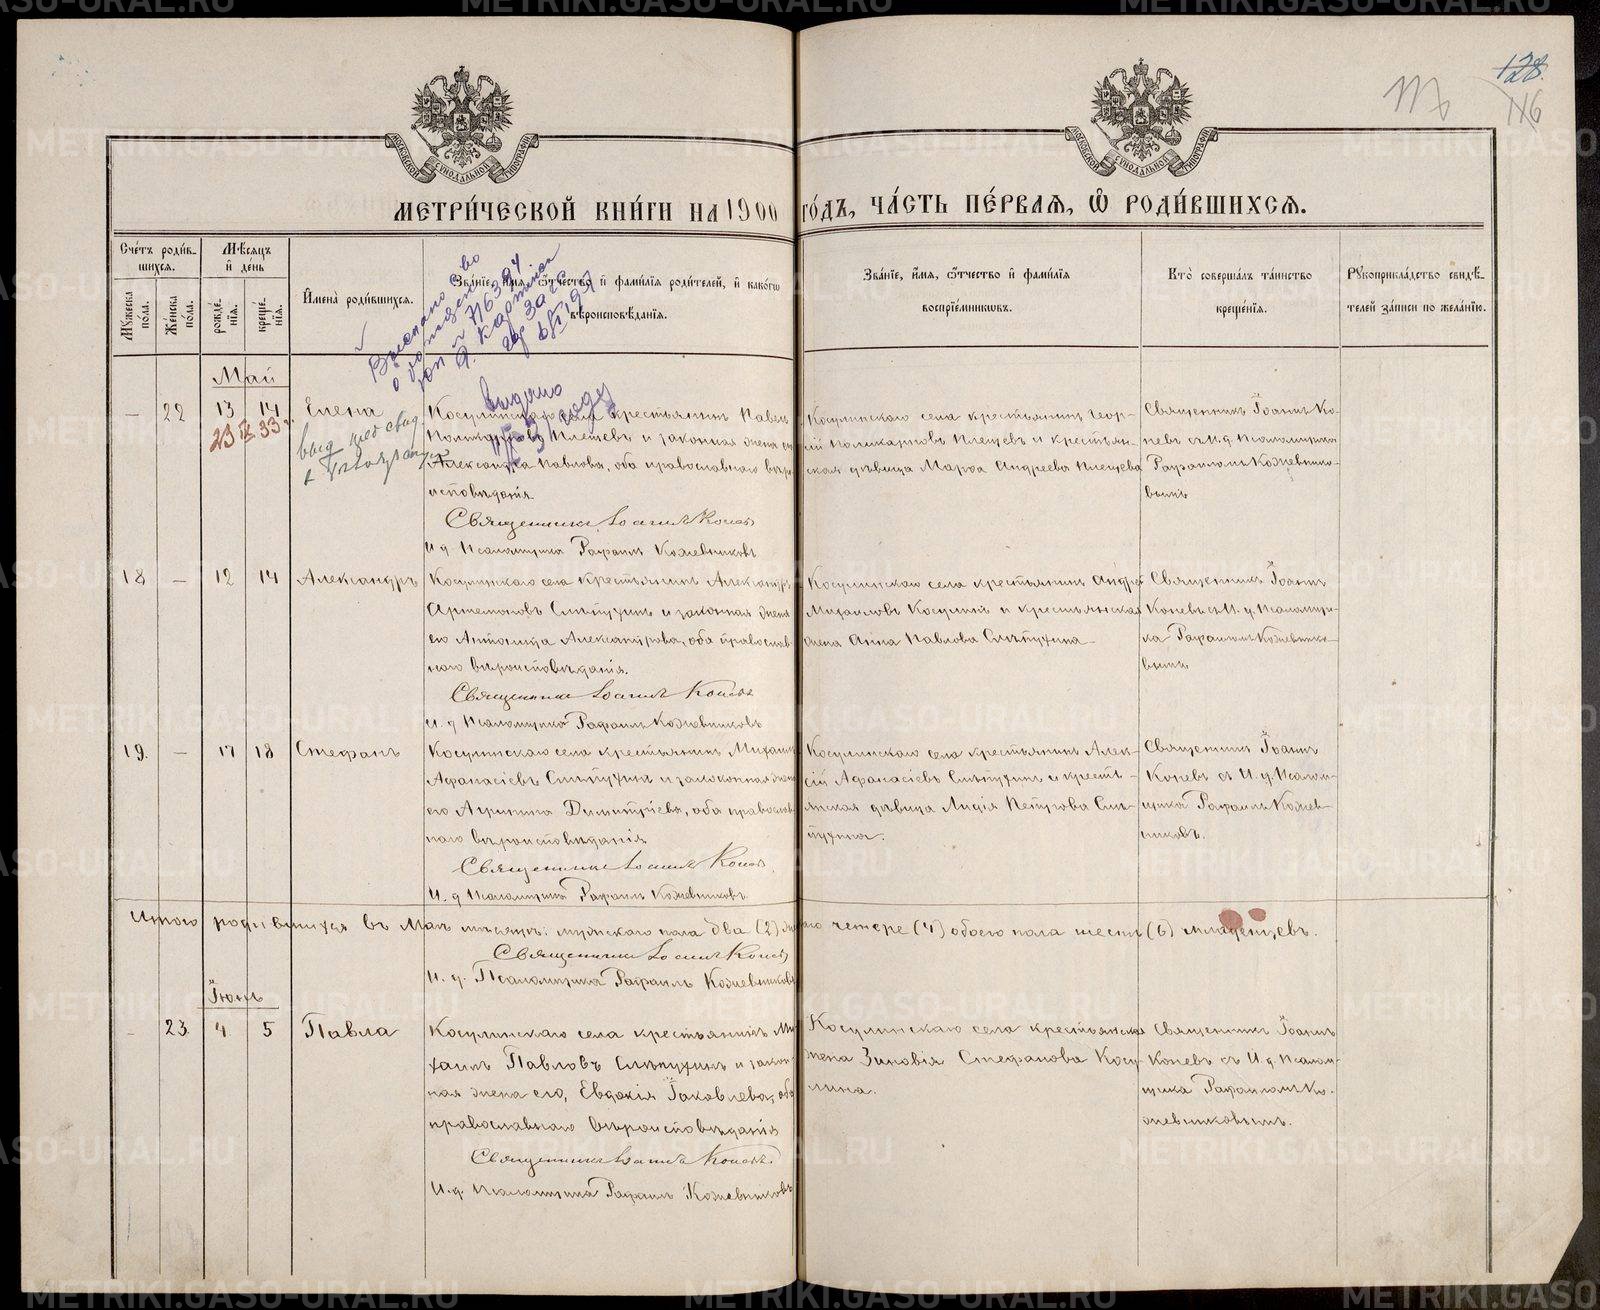 128.
116
МЕТРИ́ЧЕСКОЙ КНИ́ГИ НА 1900 ГО́ДЪ, ЧА́СТЬ ПЕ́РВАЯ, Ѽ РОДИ́ВШИХСЯ.
МОСКОВСКОЙ СѴНОДАЛЬНОЙ ТИПОГРАФІИ
МОСКОВСКОЙ СѴНОДАЛЬНОЙ ТИПОГРАФІИ
Сче́тъ роди́вшихся.
Мѣ́сяцъ и҆ де́нь
Мꙋ́жеска по́ла.
Же́нска по́ла.
рожде́нїѧ.
креще́нїѧ.
И҆мена̀ роди́вшихсѧ.
Зва́нїе, и҆́мѧ, ѻ҆́тчество и҆ фами́лїѧ роди́телей, и҆ како́гѡ вѣроисповѣ́данїѧ.
Зва́нїе, и҆́мѧ, ѻ҆́тчество и҆ фами́лїѧ воспрїе́мникѡвъ.
Кто̀ соверша́лъ та́инство креще́нїѧ.
Рꙋкоприкла́дство свидѣ́телей за́писи по жела́нїю.
Май
— 22 13 14 Елена
Косулинскаго села крестьянинъ Павелъ
Поликарповъ Плещевъ и законная жена его
Александра Павлова, оба православнаго вѣро-
исповѣданія.
Священникъ Іоаннъ Коневъ
И. д. Псаломщика Рафаилъ Кожевниковъ
Косулинскаго села крестьянинъ Геор-
гій Поликарповъ Плещевъ и крестьян-
ская дѣвица Марѳа Андреева Плещева
Священникъ Іоаннъ Ко-
невъ съ И. д. Псаломщика
Рафаиломъ Кожевнико-
вымъ
18 — 12 14 Александръ
Косулинскаго села крестьянинъ Александръ
Артемоновъ Слѣпухинъ и законная жена
его Антонида Александрова, оба православ-
наго вѣроисповѣданія.
Священникъ Іоаннъ Коневъ
И. д. Псаломщика Рафаилъ Кожевниковъ
Косулинскаго села крестьянинъ Андрей
Михаиловъ Косулинъ и крестьянская
жена Анна Павлова Слѣпухина
Священникъ Іоаннъ
Коневъ съ И. д. Псаломщи-
ка Рафаиломъ Кожевнико-
вымъ
19. — 17 18 Стефанъ
Косулинскаго села крестьянинъ Михаилъ
Афанасіевъ Слѣпухинъ и законная жена
его Агрипина Димитріева, оба православ-
наго вѣроисповѣданія
Священникъ Іоаннъ Коневъ.
И. д. Псаломщика Рафаилъ Кожевниковъ
Косулинскаго села крестьянинъ Алек-
сій Афанасіевъ Слѣпухинъ и кресть-
янская дѣвица Лидія Петрова Слѣ-
пухина.
Священникъ Іоаннъ
Коневъ съ И. д. Псалом-
щика Рафаиломъ Кожев-
никовъ.
Итого родившихся въ Маѣ мѣсяцѣ: мужскаго пола два (2) женскаго четере (4) обоего пола шесть (6) младенцевъ.
Священникъ Іоаннъ Коневъ
И. д. Псаломщика Рафаилъ Кожевниковъ
Іюнь
— 23 4 5 Павла
Косулинскаго села крестьянинъ Ми-
хаилъ Павловъ Слѣпухинъ и закон-
ная жена его, Евдокія Іаковлева, оба
православнаго вѣроисповѣданія
Священникъ Іоаннъ Коневъ.
И. д. Псаломщика Рафаилъ Кожевниковъ
Косулинскаго села крестьянская
жена Зиновія Стефанова Косу-
лина.
Священникъ Іоаннъ
Коневъ съ И. д. Псалом-
щика Рафаиломъ Ко-
жевниковымъ.
METRIKI.GASO-URAL.RU